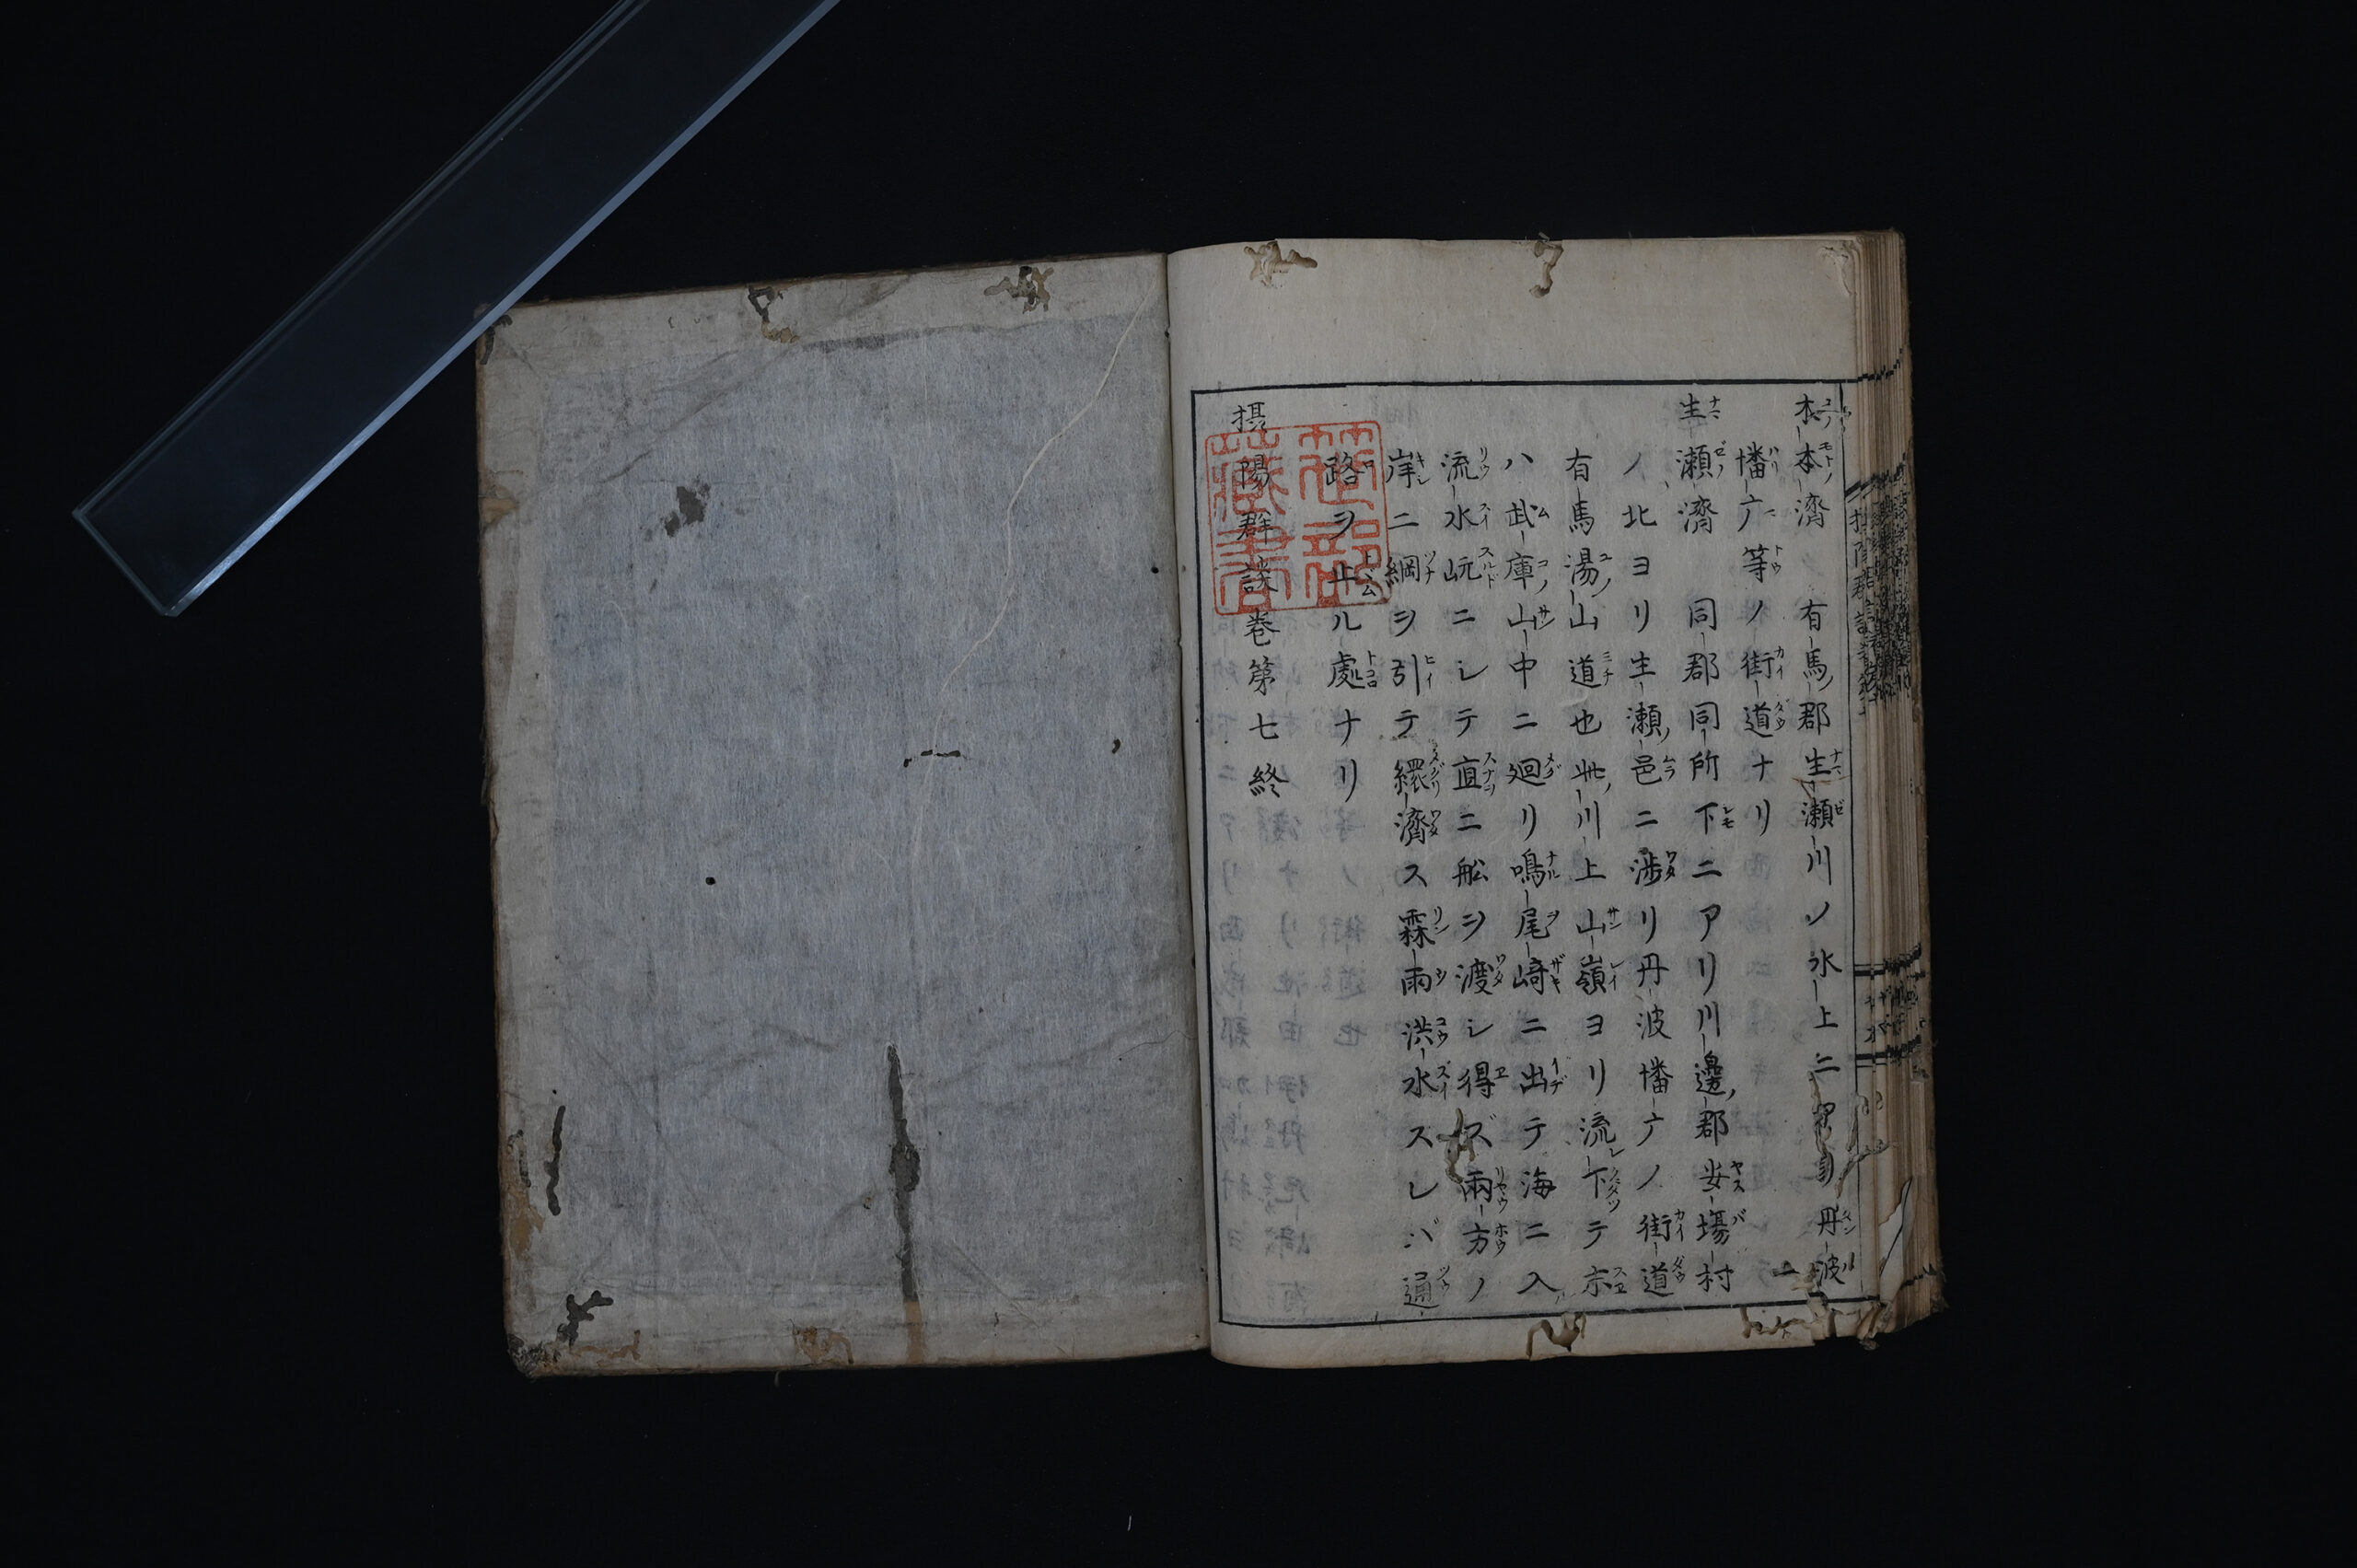 木本濟 有馬郡生瀬川ノ水上ニ 丹波
幡广等ノ街道ナリ
生瀬濟 同郡同所下ニアリ川邊郡安塲村
ノ北ヨリ生瀬邑ニ渉リ丹波幡广ノ街道
有馬湯山道也此川上山嶺ヨリ流下テ末
ハ武庫山中ニ廻リ鳴尾崎ニ出テ海ニ入
流水岏ニシテ直ニ舩ヲ渡シ得ズ兩方ノ
岸ニ綱ヲ引テ繯濟ス霖雨洪水スレバ通
路ヲ止ル處ナリ
摂陽群談巻第七終